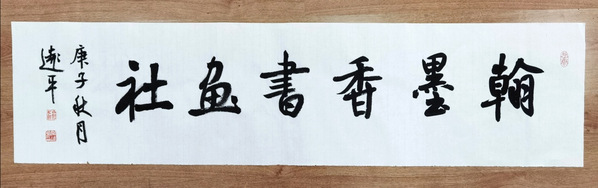 翰墨香書画社
庚子秋月
遠平